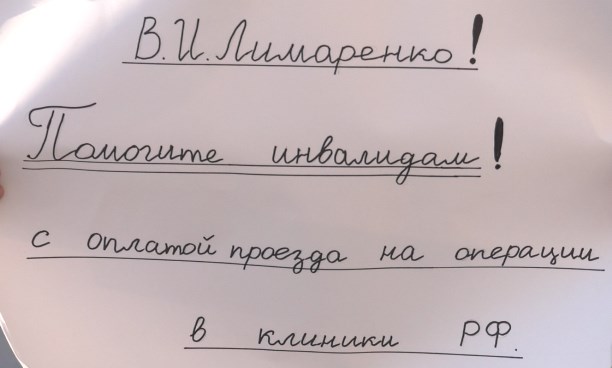 В.И.Лимаренко!
Помогите инвалидам!
с оплатой проезда на операции
в клиники РФ.